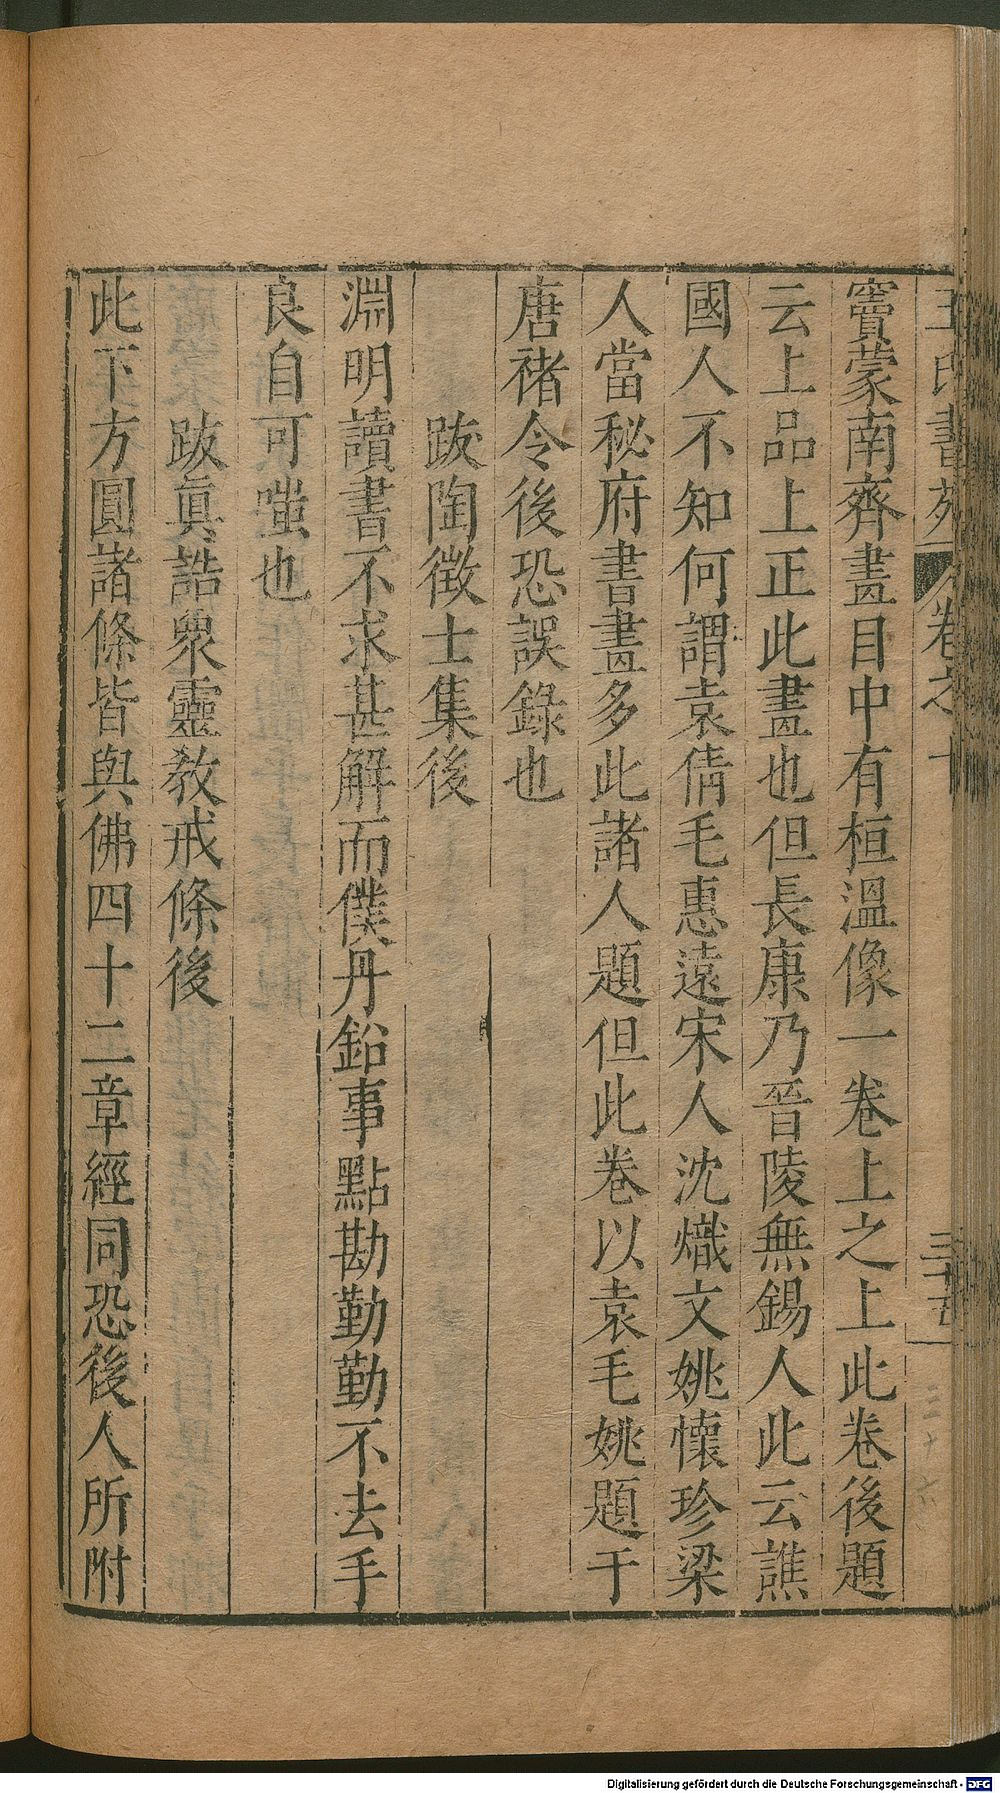 王氏書苑 卷之十 三十五
竇蒙南齊畫目中有桓溫像一卷上之上此卷後題
云上品上正此畫也但長康乃晉陵無錫人此云譙
國人不知何謂袁倩毛惠遠宋人沈熾文姚懷珍梁
人當秘府書畫多此諸人題但此卷以袁毛姚題于
唐褚令後恐誤錄也
跋陶徵士集後
淵明讀書不求甚解而僕丹鉛事點勘勤勤不去手
良自可嗤也
跋眞誥衆靈敎戒條後
此下方圓諸條皆與佛四十二章經同恐後人所附
三十六
Digitalisierung gefördert durch die Deutsche Forschungsgemeinschaft - DFG